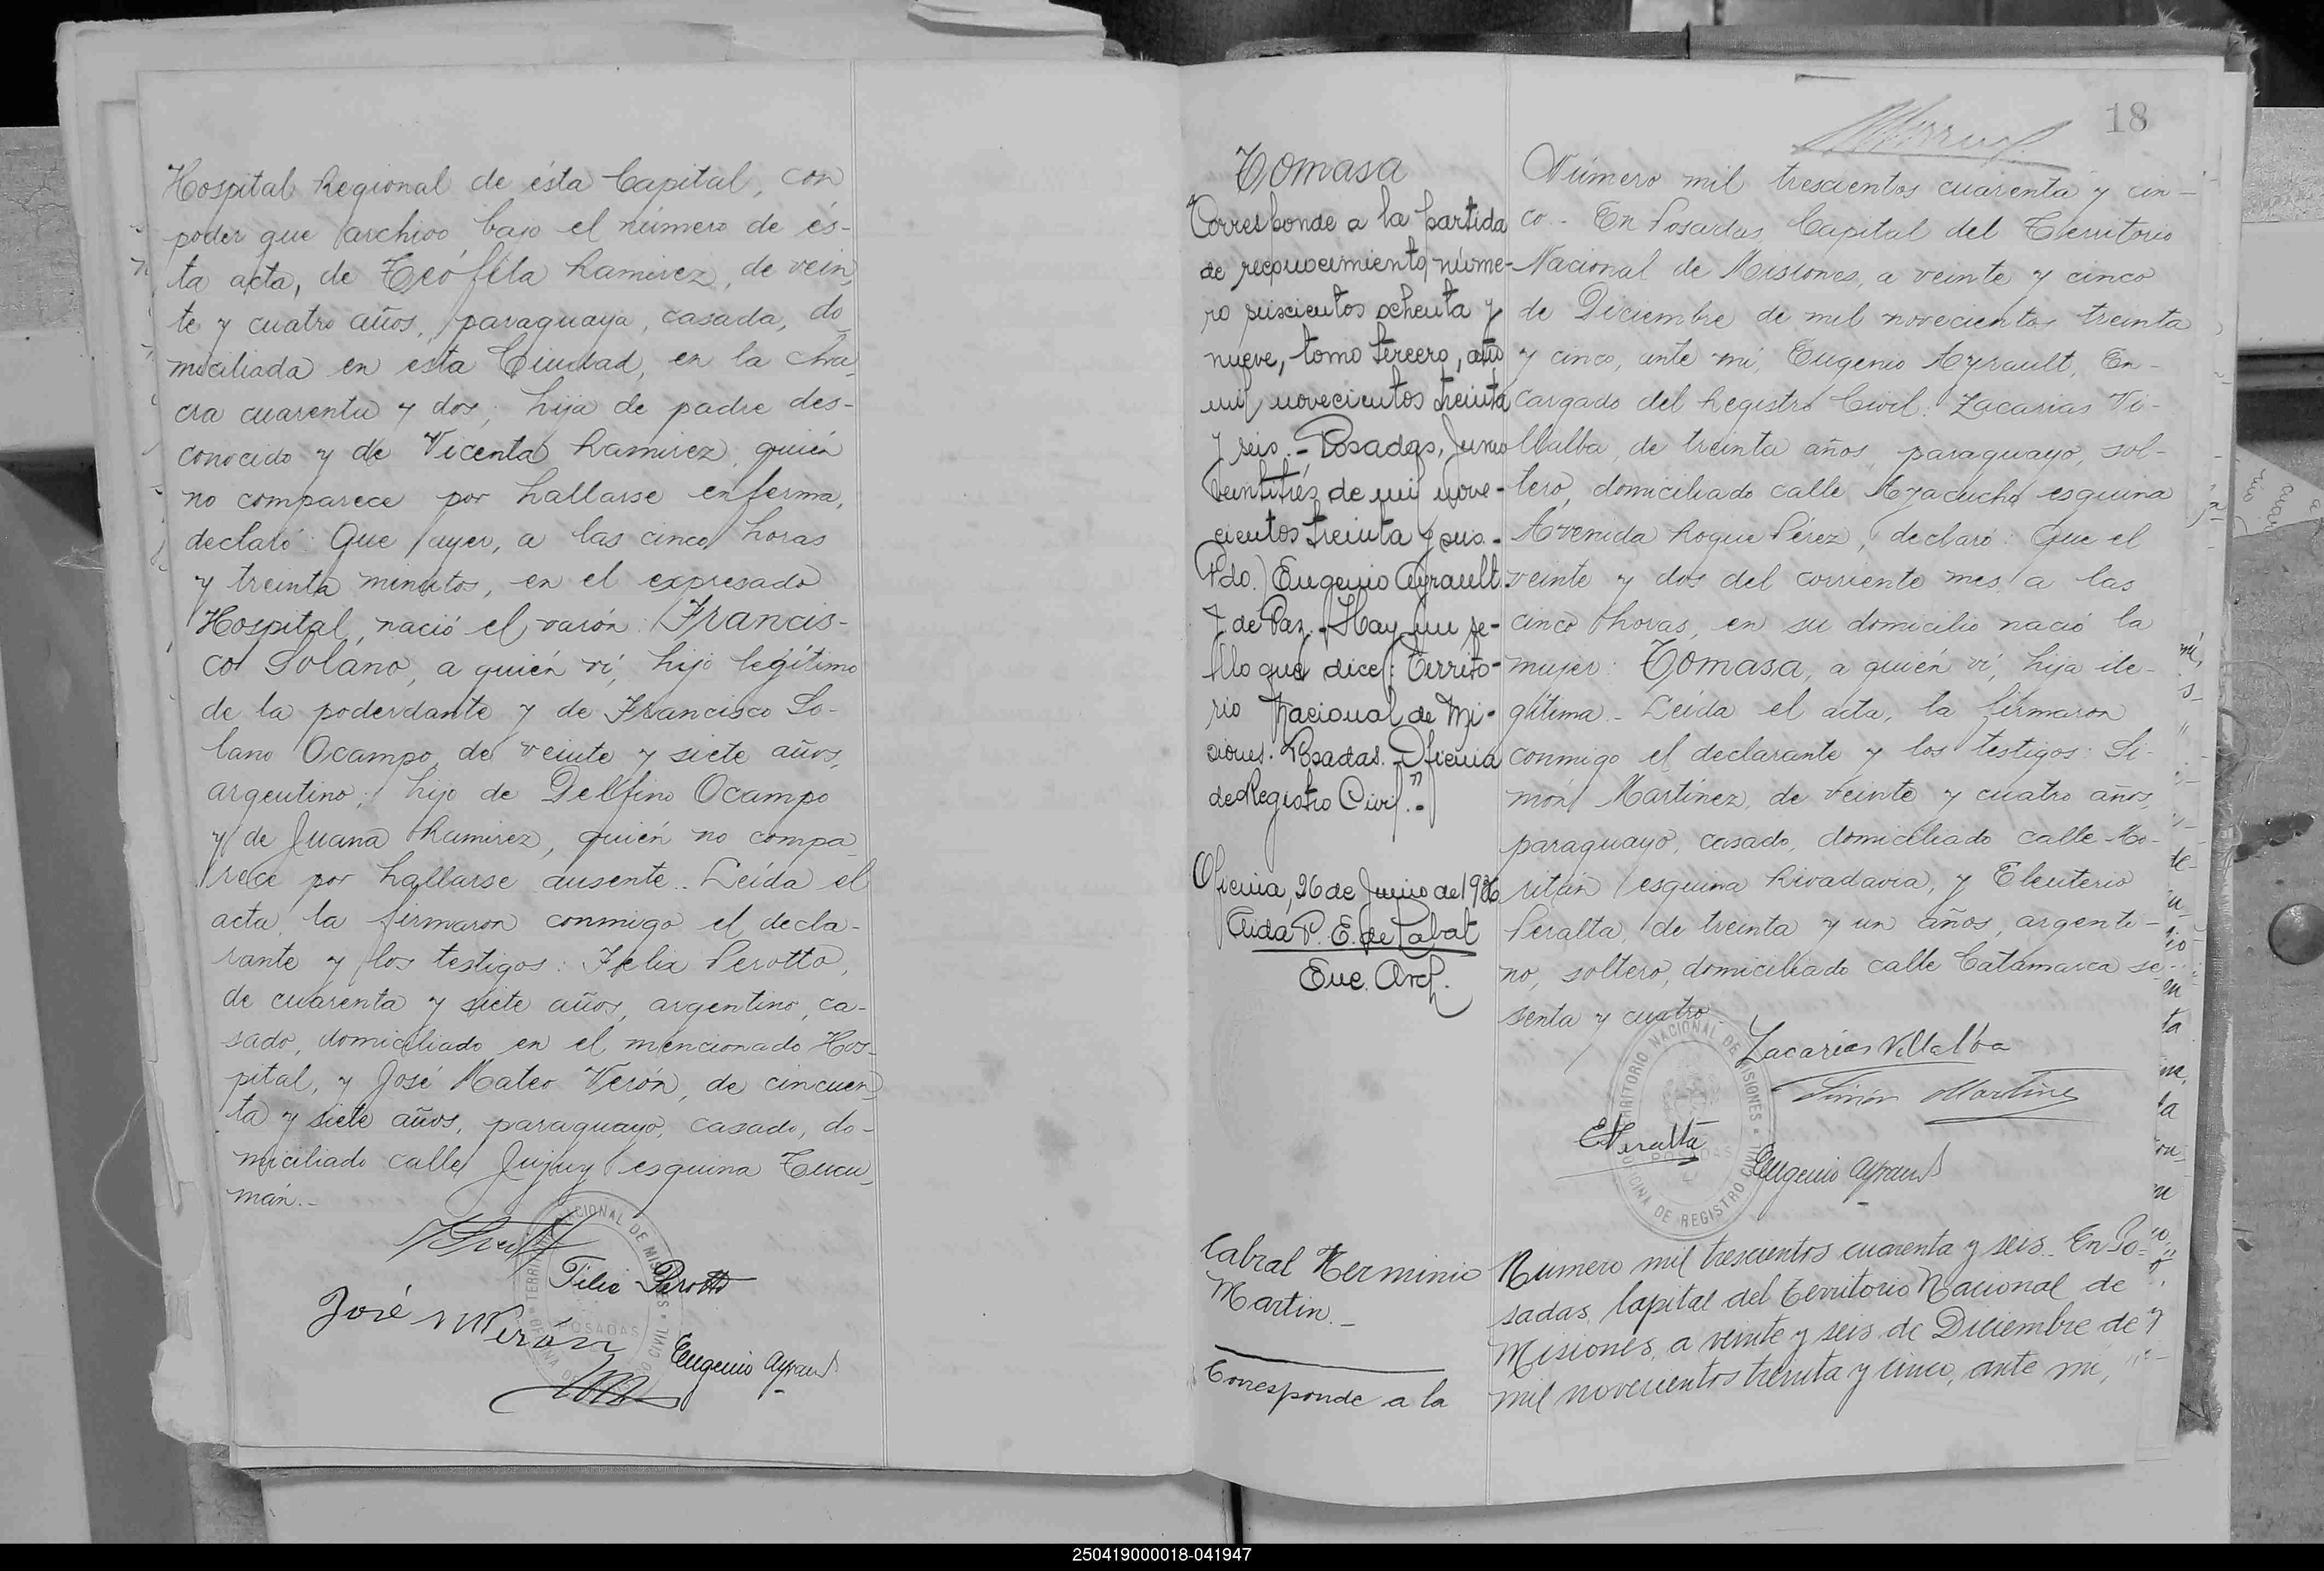 Hospital Regional de ésta Capital, con
poder que archivo bajo el número de és-
ta acta, de Teófila Ramirez, de vein
te y cuatro años, paraguaya, casada, do
miciliada en esta Ciudad, en la cha
cra cuarenta y dos, hija de padre des-
conocido y de Vicenta Ramirez, quién
no comparece por hallarse enferma,
declaró: Que ayer, a las cinco horas
y treinta minutos, en el expresado
Hospital, nació el varón: Francis-
co Soláno, a quién ví, hijo legítimo
de la poderdante y de Francisco So-
lano Ocampo, de veinte y siete años,
argentino, hijo de Delfino Ocampo
y de Juana Ramirez, quién no compa
rece por hallarse ausente.. Leída el
acta, la firmaron conmigo el decla-
rante y los testigos: Felix Perotto,
de cuarenta y siete años, argentino, ca-
sado, domiciliado en el mencionado Hos-
pital, y José Mateo Verón, de cincuen
ta y siete años, paraguayo, casado, do-
miciliado calle Jujuy esquina Tucu
mán.-
Felix Perotto
José M Verón
Eugenio Ayrault
TERRITORIO NACIONAL DE MISIONES
POSADAS
OFICINA DE REGISTRO CIVIL
18
Tomasa
Corresponde a la partida
de reconocimiento núme-
ro seiscientos ochenta y
nueve, tomo tercero, año
mil novecientos treinta
y seis.- Posadas, Junio
veintitrés de mil nove-
cientos treinta y seis.-
Fdo.) Eugenio Ayrault.
J. de Paz.- Hay un se-
llo que dice: "Territo-
rio Nacional de Mi-
siones. Posadas. Oficina
de Registro Civil".-
Oficina, 26 de Junio de 1936
Aida P. E. de Labat
Enc. Arch.
Número mil trescientos cuarenta y cin-
co.- En Posadas, Capital del Territorio
Nacional de Misiones, a veinte y cinco
de Diciembre de mil novecientos treinta
y cinco, ante mi, Eugenio Ayrault, En-
cargado del Registro Civil: Zacarias Vi-
llalba, de treinta años, paraguayo, sol-
tero, domiciliado calle Ayacucho esquina
Avenida Roque Pérez, declaró: Que el
veinte y dos del corriente mes, a las
cinco horas, en su domicilio nació la
mujer: Tomasa, a quién ví, hija ile-
gítima.- Leída el acta, la firmaron
conmigo el declarante y los testigos: Si-
món Martínez, de veinte y cuatro años,
paraguayo, casado, domiciliado calle Mo-
ritán esquina Rivadavia, y Eleuterio
Peralta, de treinta y un años, argenti-
no, soltero, domiciliado calle Catamarca se-
senta y cuatro.
Zacarias Villalba
Simón Martinez
E Peralta
Eugenio Ayrault
TERRITORIO NACIONAL DE MISIONES
POSADAS
OFICINA DE REGISTRO CIVIL
Cabral Herminio
Martin.-
Corresponde a la
Numero mil trescientos cuarenta y seis. En Po-
sadas, Capital del Territorio Nacional de
Misiones, a veinte y seis de Diciembre de
mil novecientos treinta y cinco, ante mi,
250419000018-041947